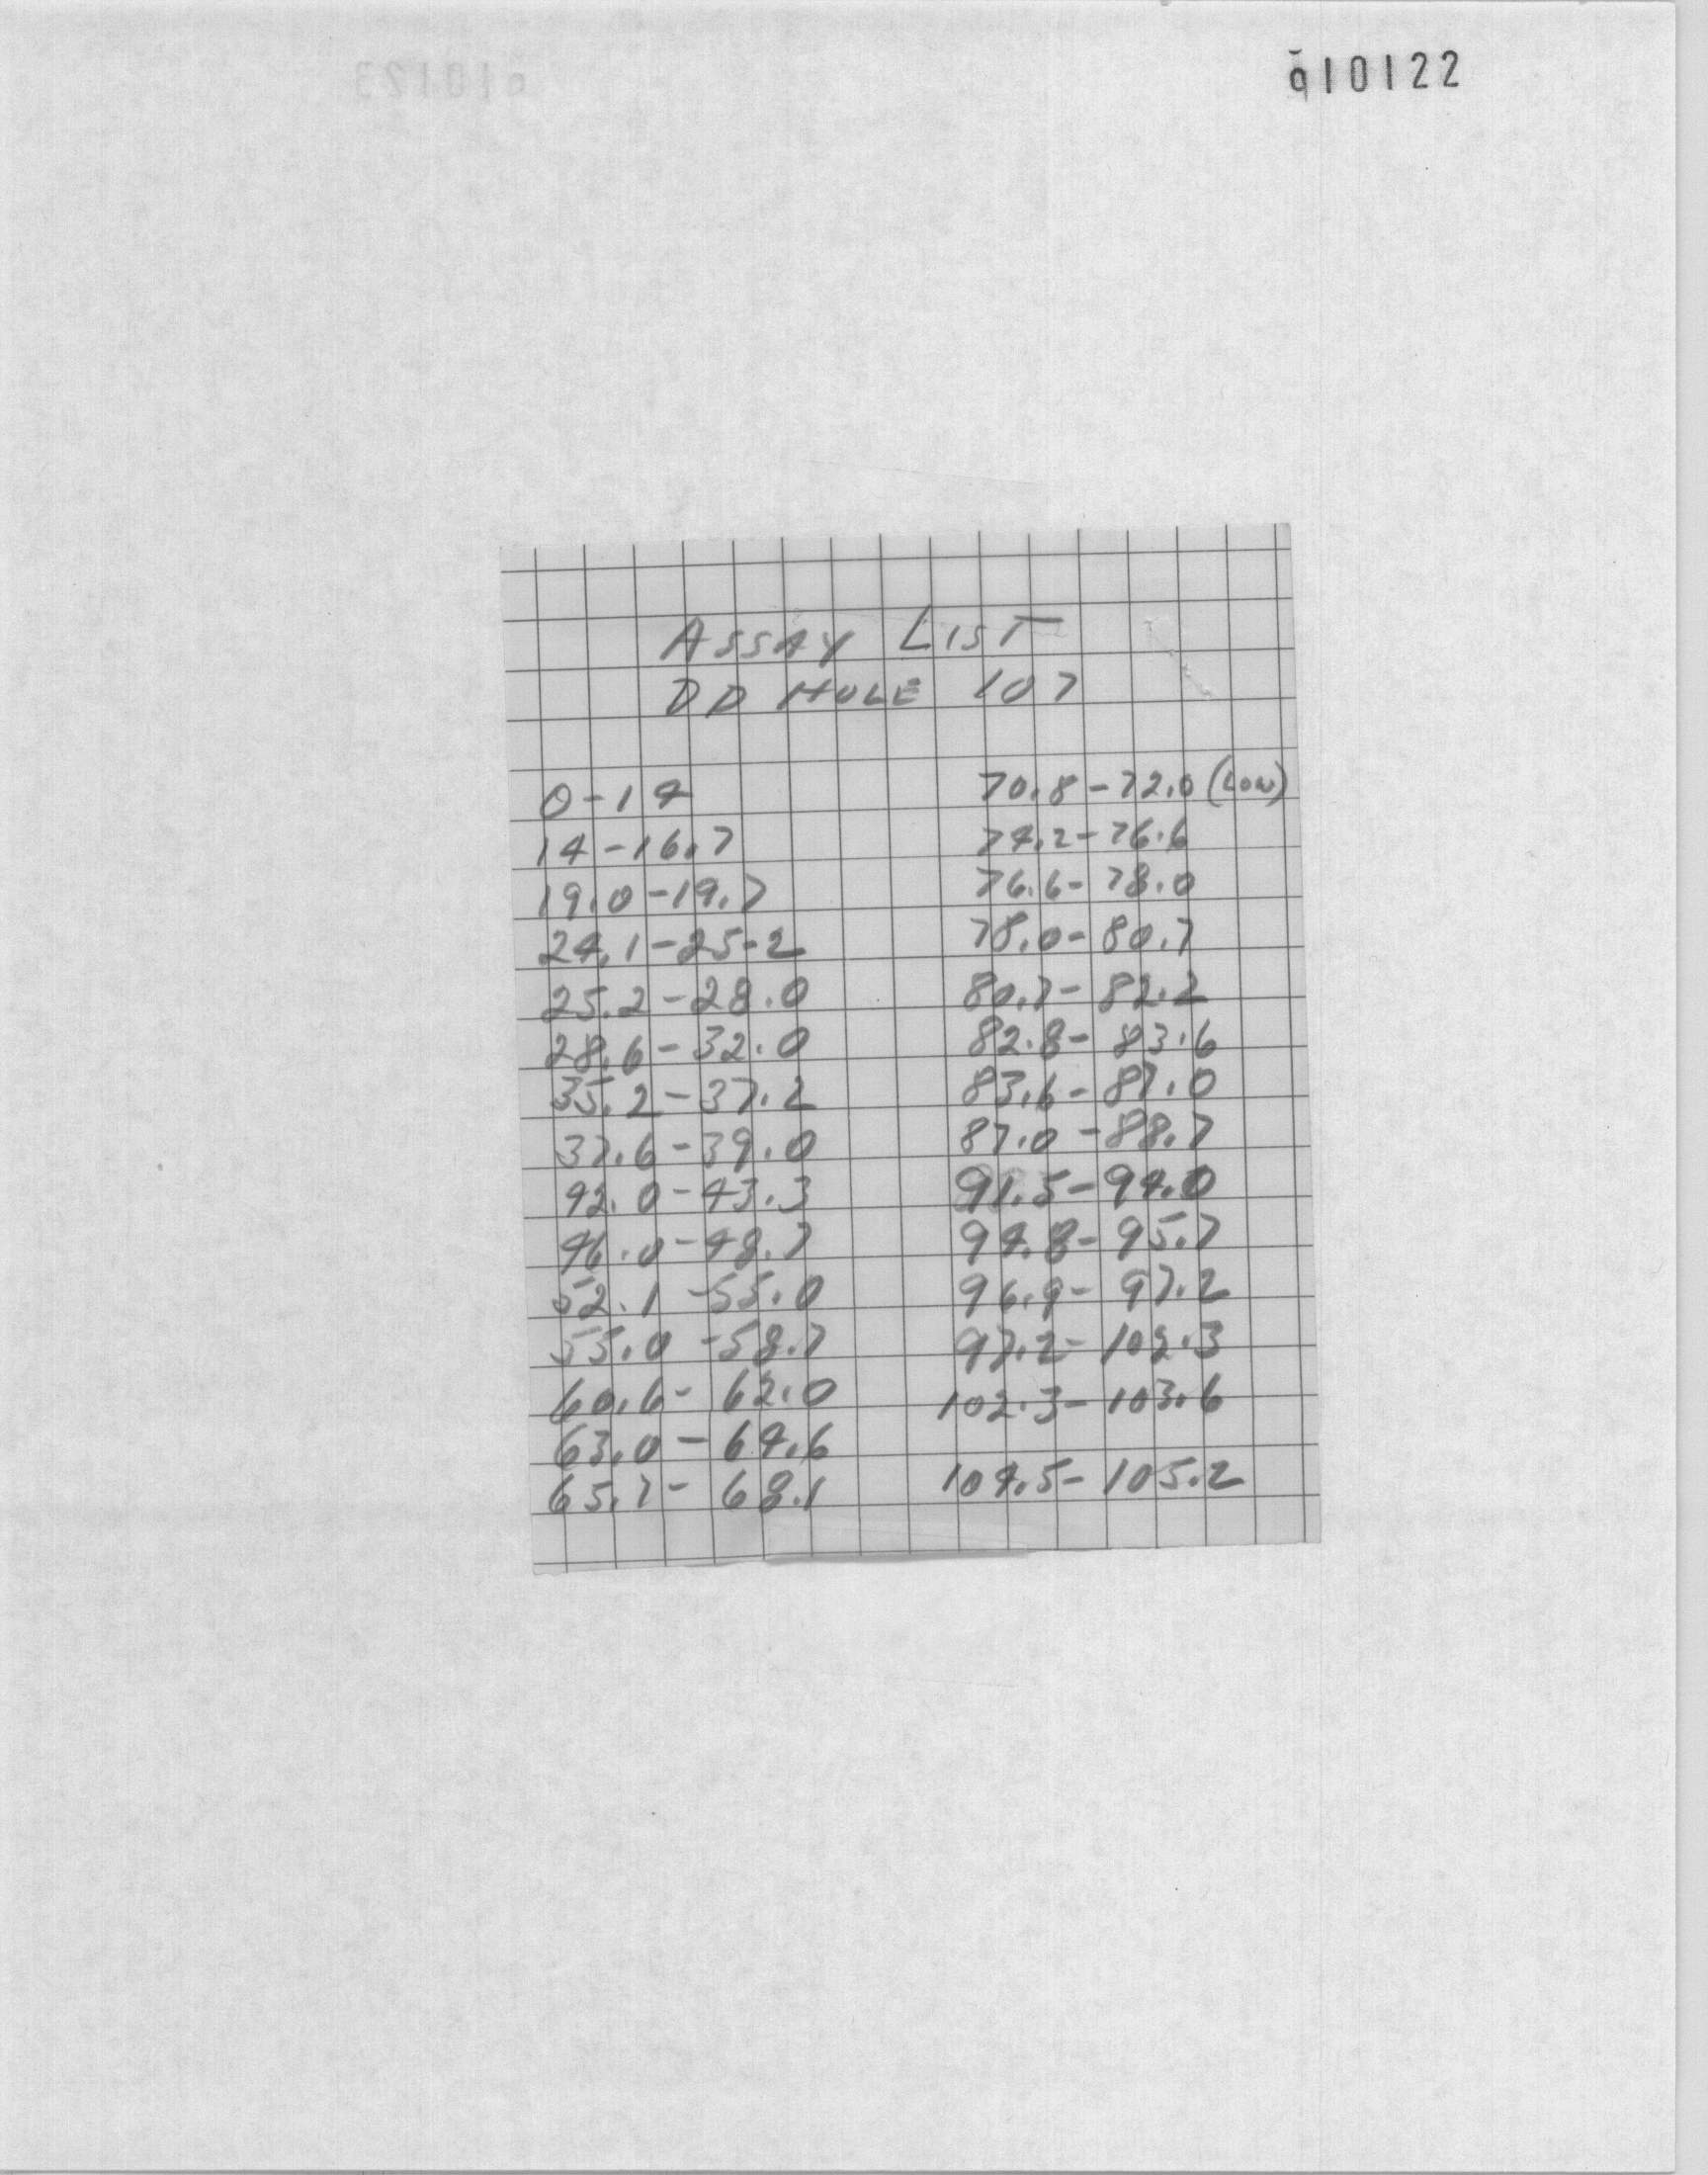 010122
ASSAY LIST
DD HOLE 107
0-14
14-16.7
19.0-19.7
24.1-25-2
25.2-28.0
28.6-32.0
35.2-37.2
37.6-39.0
42.0-43.3
46.0-48.7
52.1-55.0
55.0-58.7
60.6-62.0
63.0-64.6
65.7-68.1
70.8-72.0 (LOW)
74.2-76.6
76.6-78.0
78.0-80.7
80.7-82.2
82.8-83.6
83.6-87.0
87.0-88.7
91.5-94.0
94.8-95.7
96.9-97.2
97.2-102.3
102.3-103.6
104.5-105.2